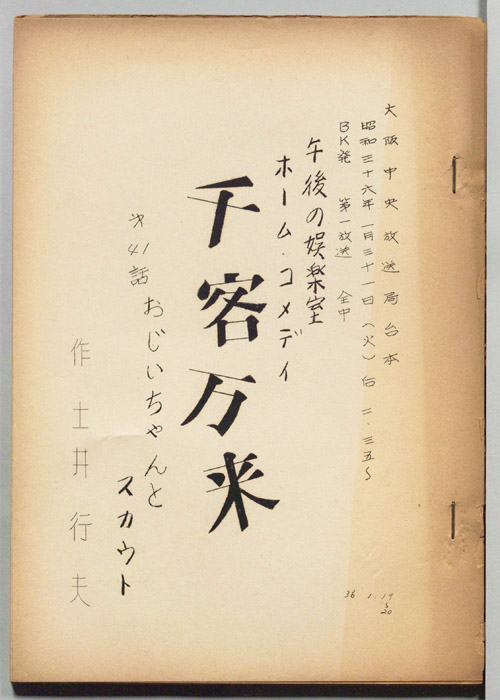 大阪中央放送局台本
昭和三十六年一月三十一日(火)后二・三五〜
BK発 第一放送 全中
午後の娯楽室
ホーム・コメディ
千客万来
才41話 おじいちゃんと
スカウト
作 土井行夫
36.1.19
〜20